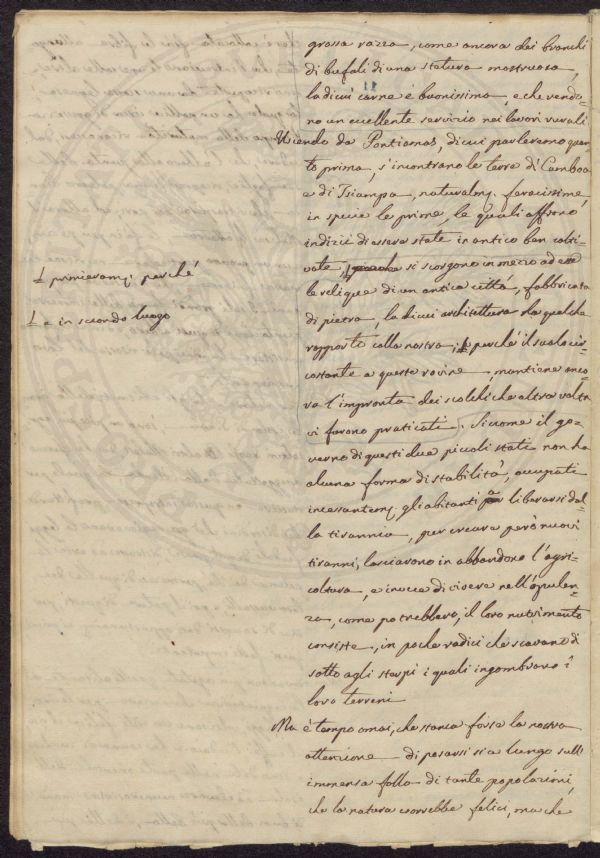 grossa razza, come ancora dei branchi
di bufali di una statura mostruosa,
la di cui carne è buonissima, e che rendo-
no un eccellente servizio nei lavori rurali
Uscendo da Pontiamas, di cui parleremo quan-
to prima, s'incontrano le terre di Camboa
e di Tsiampa, naturalm. feracissime,
in specie le prime, le quali offrono
indizii di essere state in antico ben colti-
vate, si scorgono in mezzo ad esse
le relique di un antica città, fabbricata
di pietra, la di cui architettura ha qualche
rapporto colla nostra; perchè il suolo cir-
costante a queste rovine, mantiene anco-
ra l'impronta dei solchi che altra volta
vi furono praticati. Siccome il go-
verno di questi due piccoli stati non ha
alcuna forma di stabilità, occupati
incessantem. gli abitanti a liberarsi dal-
la tirannia, per creare però nuovi
tiranni, lasciarono in abbandono l'agri-
coltura, e invece di vivere nell'opulen-
za, come potrebbero, il loro nutrimento
consiste, in poche radici che scavano di
sotto agli sterpi i quali ingombrano i
loro terreni
Ma è tempo omai, che stanca forse la nostra
attenzione di posarsi sì a lungo sull'
immensa folla di tante popolazioni,
che la natura vorrebbe felici, ma che
primieram. perchè
e in secondo luogo